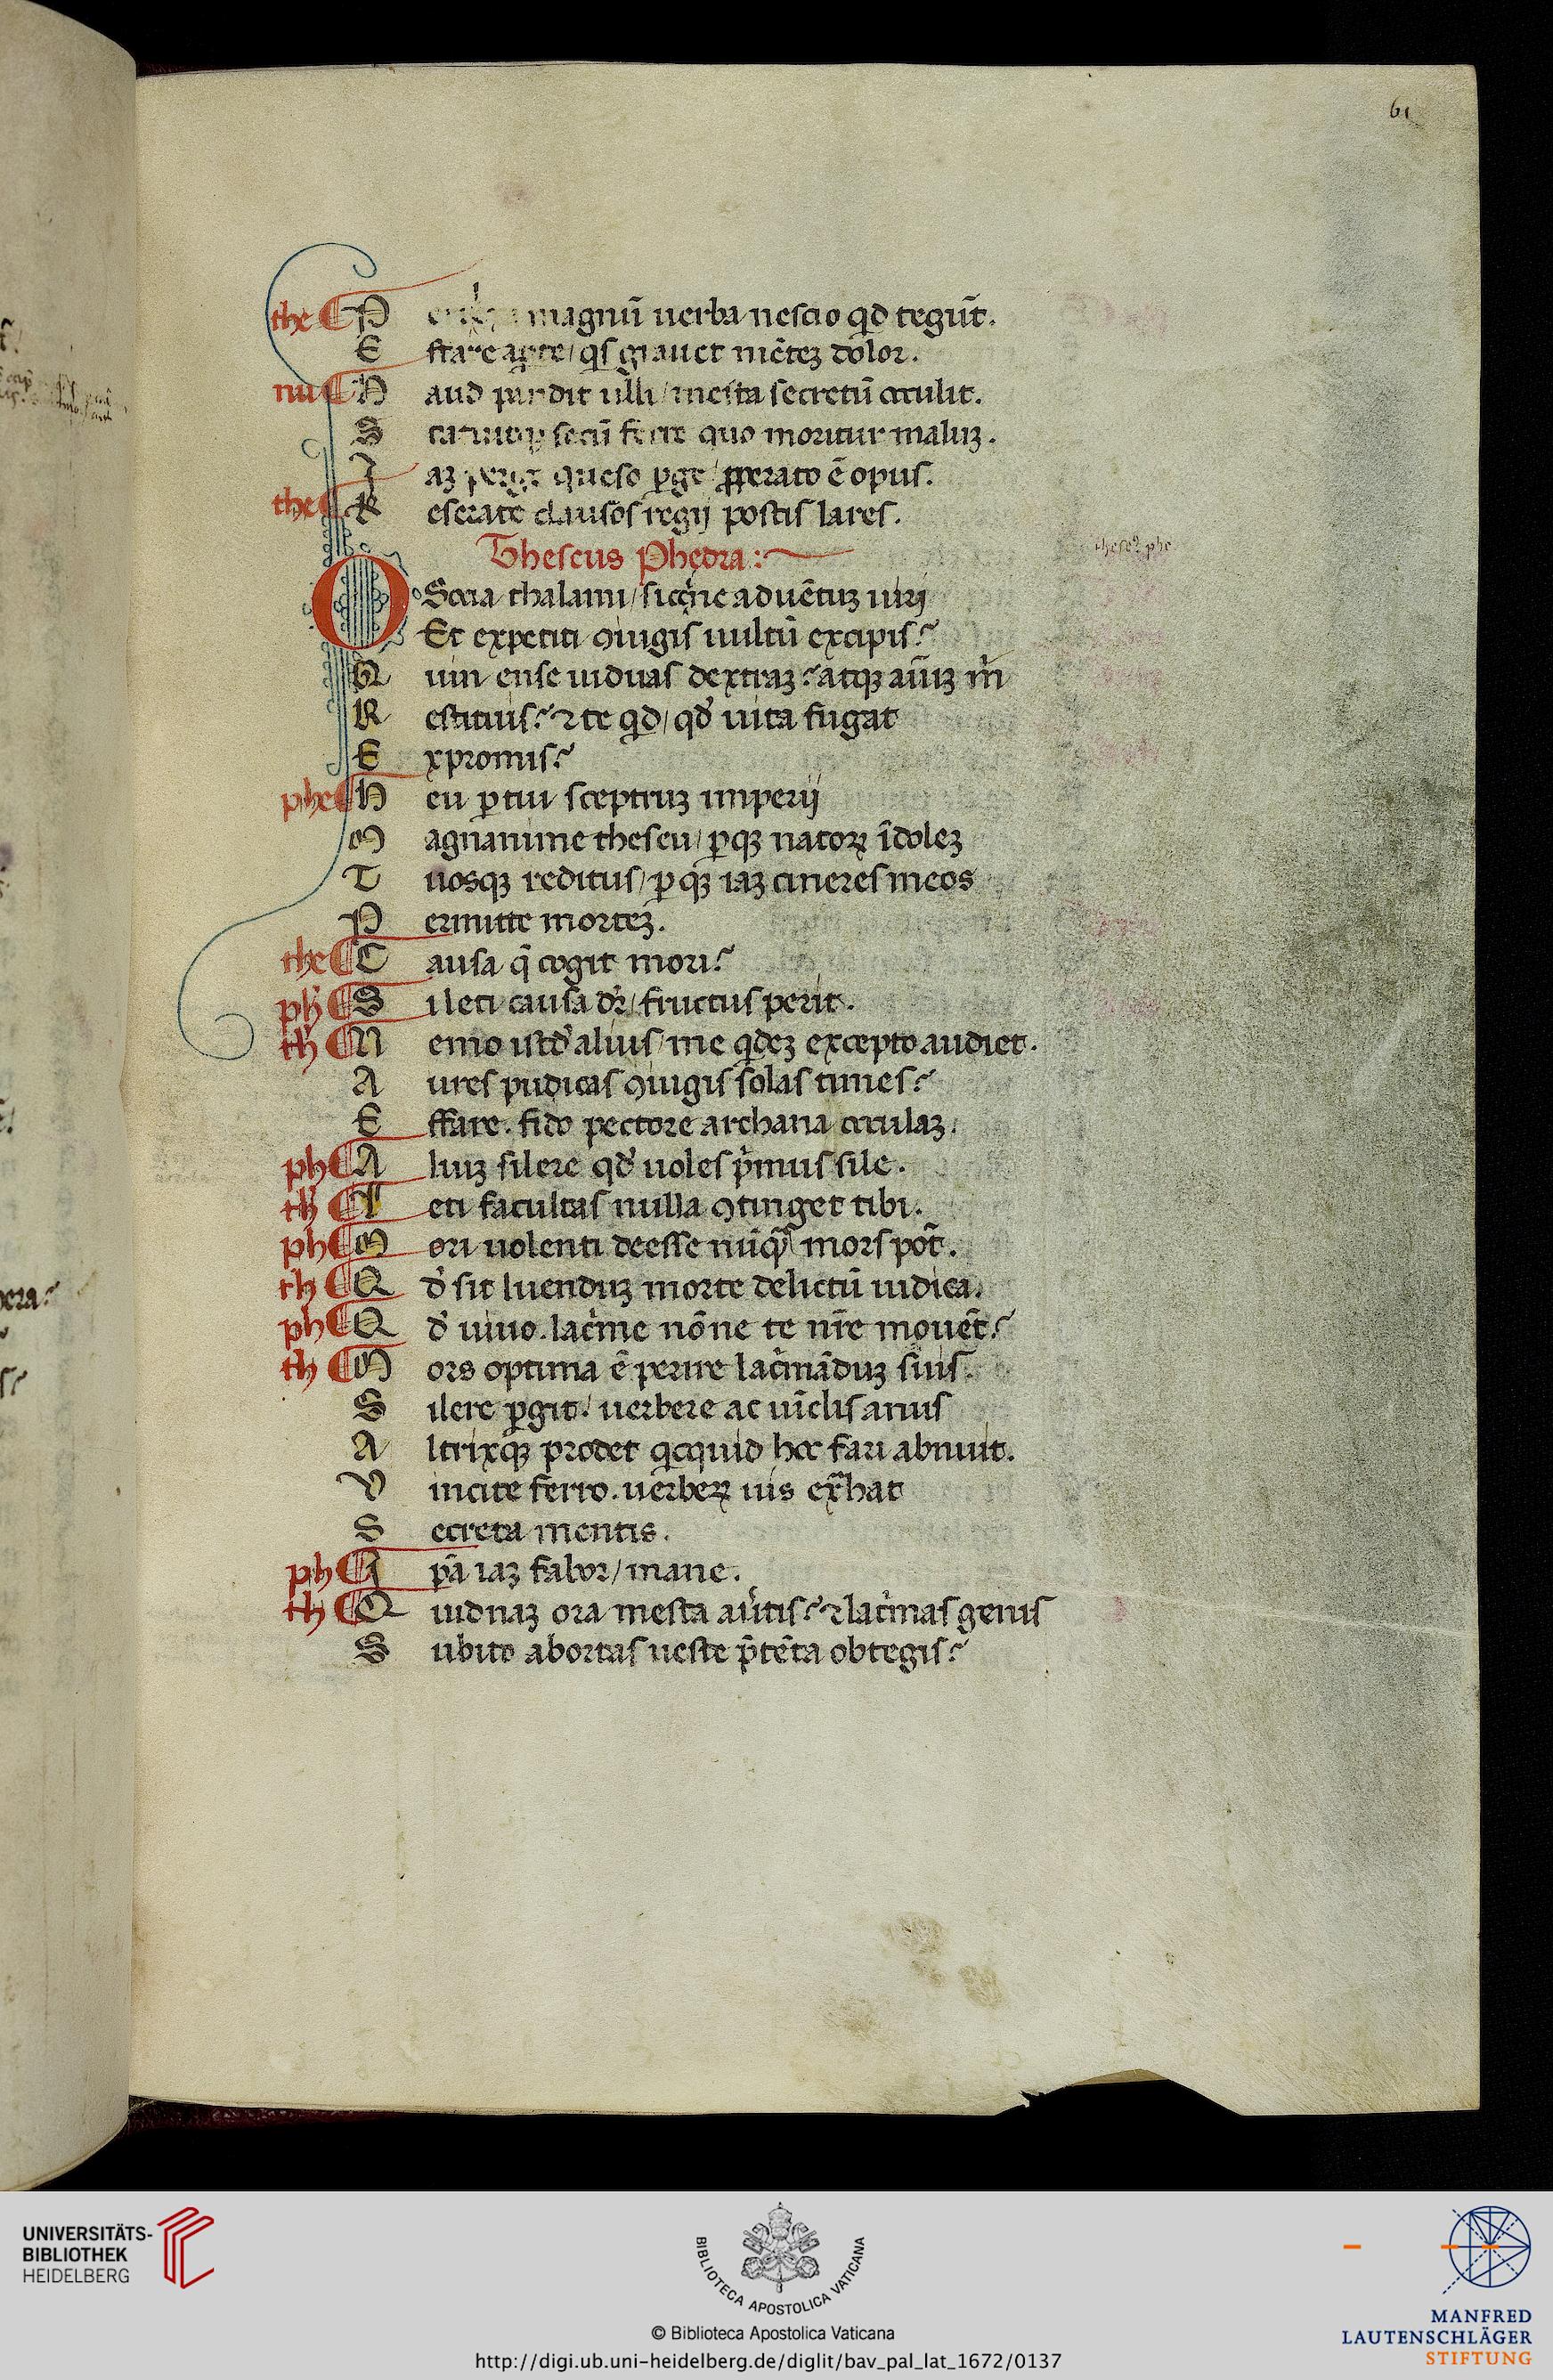 61
the P magnũ uerba nescio qd tegũt.
E ffare aperte / qͥs grauet mẽteꝫ dolor.
nu H aud pandit ulli / mesta secretũ occulit.
S tatuitqꝫ secũ ferre quo moritur maluꝫ.
I aꝫ perge queso ꝑge / ꝓperato ẽ opus.
the R eserate clausos regij postis lares.
Theseus Phedra:
these9 phe
O Socia thalami / siccͥne aduẽtuꝫ uirj
Et expetiti ꝯiugis uultũ excipis?
Q uin ense uiduas dextraꝫ? atqꝫ aĩuꝫ m̃
R estituis? ⁊ te qͥd / qd̓ uita fugat
E xpromis?
phe H eu ꝑ tui sceptruꝫ imperij
M agnanime theseu / ꝑqꝫ natoꝝ ĩdoleꝫ
T uosqꝫ reditus / ꝑqꝫ iaꝫ cineres meos
P ermitte morteꝫ.
the C ausa q̃ cogit mori?
ph S i leti causa dr̃ / fructus perit.
th N emo istd̓ alius / me qͥdeꝫ excepto audiet.
A ures pudicas ꝯiugis solas times?
E ffare. fido pectore archana occulaꝫ.
ph A liuꝫ silere qd̓ uoles pͥmus sile.
th L eti facultas nulla ꝯtinget tibi.
ph M ori uolenti deesse nũqᷓ mors põt.
th Q d̓ sit luenduꝫ morte delictũ iudica.
ph Q d̓ uiuo. lacͥme nõne te nr̃e mouẽt?
th M ors optima ẽ perire lacͥmãduꝫ suis.
S ilere ꝑgit. uerbere ac uĩclis anus
A ltrixqꝫ prodet qͥcquid hec fari abnuit.
V incite ferro. uerbeꝝ uis exᷓhat
S ecreta mentis.
ph I pã iaꝫ fabor / mane.
th Q uidnaꝫ ora mesta auͥtis? ⁊ lacͥmas genis
S ubito abortas ueste p̃tẽta obtegis?
UNIVERSITÄTS-
BIBLIOTHEK
HEIDELBERG
BIBLIOTECA APOSTOLICA VATICANA
© Biblioteca Apostolica Vaticana
http://digi.ub.uni-heidelberg.de/diglit/bav_pal_lat_1672/0137
MANFRED
LAUTENSCHLÄGER
STIFTUNG